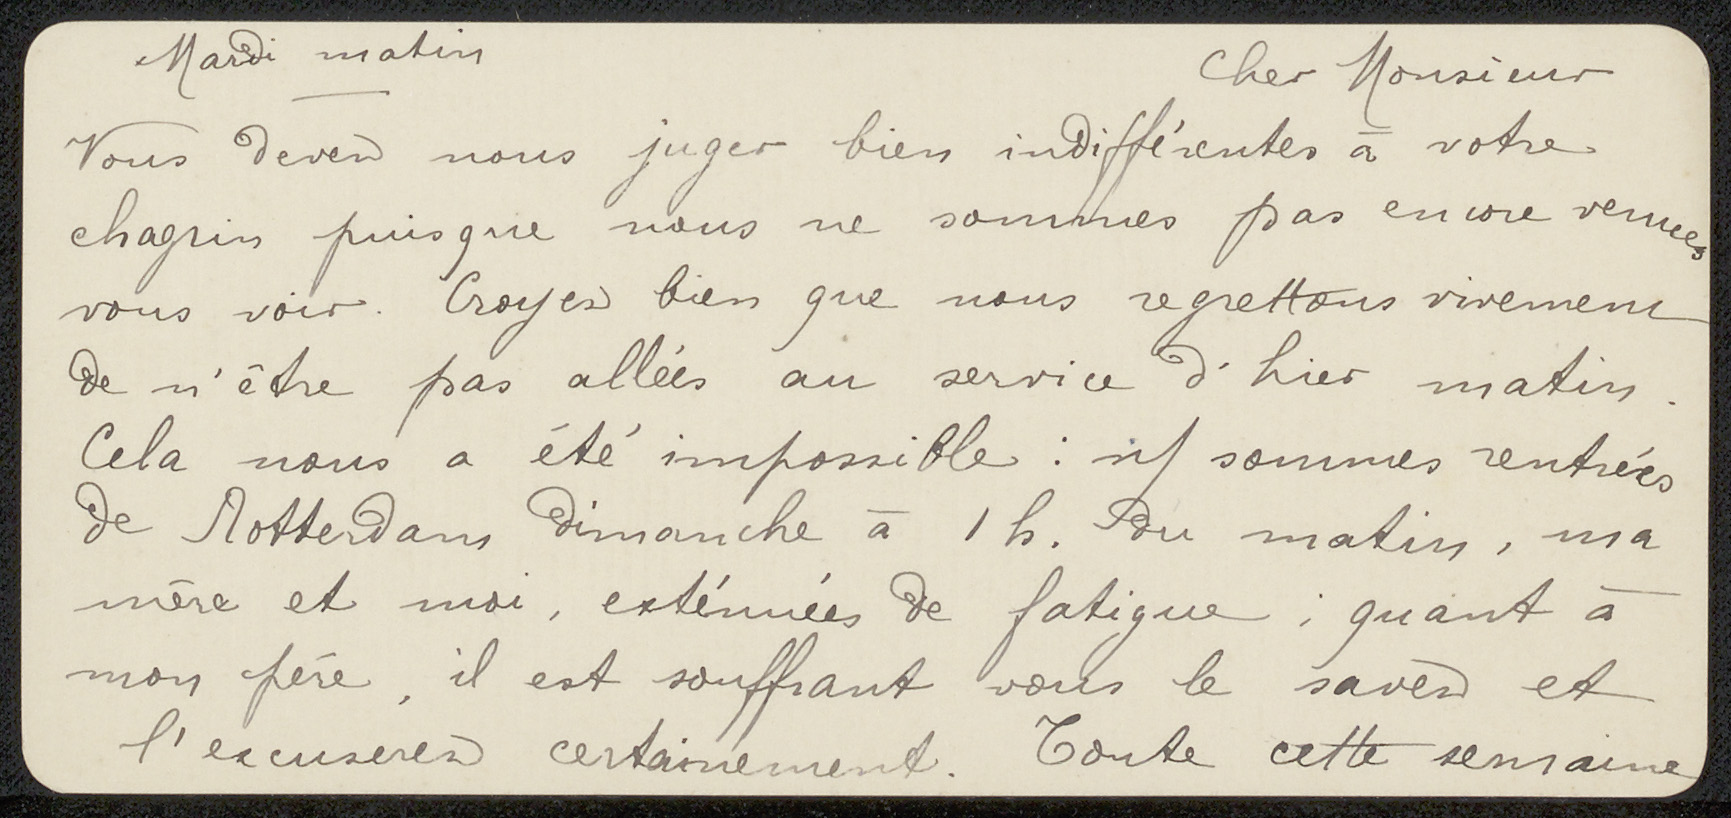 Mardi matin
Cher Monsieur
Vous devez nous juger bien indifférentes à votre
chagrin puisque nous ne sommes pas encore venues
vous voir. Croyez bien que nous regrettons vivement
de n'être pas allées au service d'hier matin.
Cela nous a été impossible : n/ sommes rentrées
de Rotterdam dimanche à 1 h. du matin, ma
mère et moi, exténuées de fatigue ; quant à
mon père, il est souffrant vous le savez et
l'excuserez certainement. Toute cette semaine